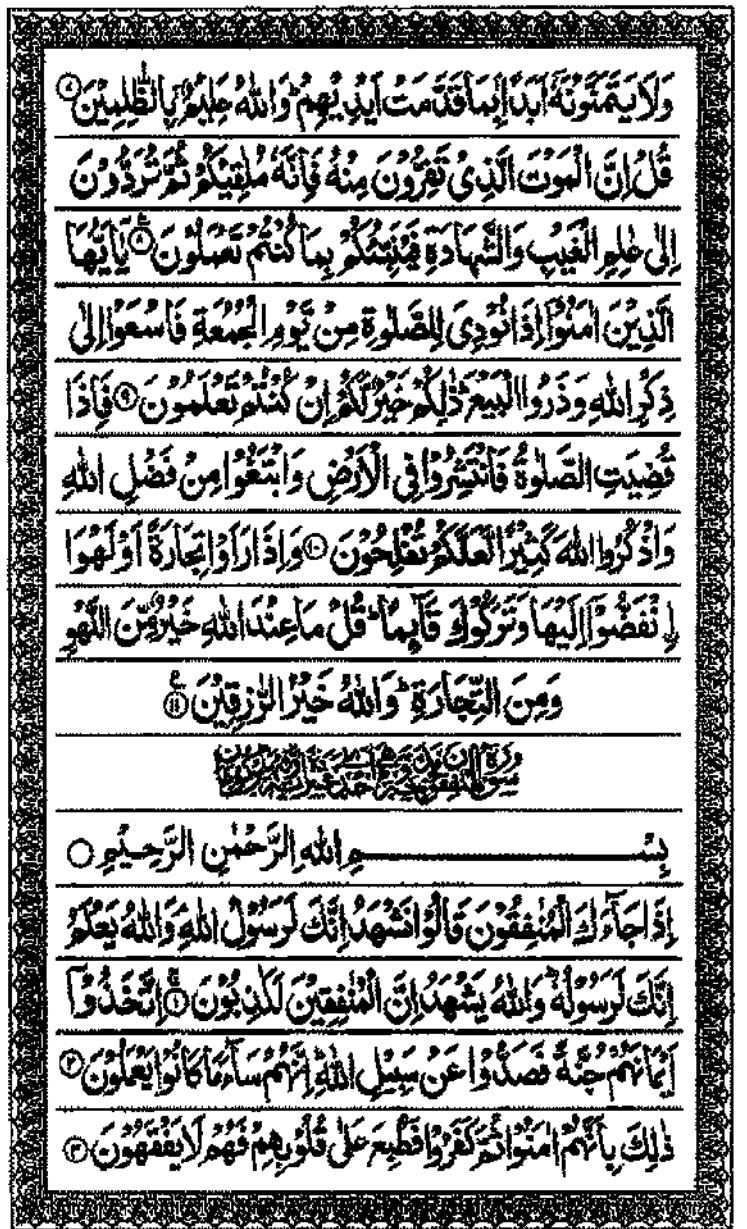 وَلَا يَتَمَنَّوْنَهٗۤ اَبَدًۢا بِمَا قَدَّمَتْ اَيْدِيْهِمْ ؕ وَاللّٰهُ عَلِيْمٌۢ بِالظّٰلِمِيْنَ ﴿۷﴾
قُلْ اِنَّ الْمَوْتَ الَّذِىْ تَفِرُّوْنَ مِنْهُ فَاِنَّهٗ مُلٰقِيْكُمْ ثُمَّ تُرَدُّوْنَ
اِلٰى عٰلِمِ الْغَيْبِ وَالشَّهَادَةِ فَيُنَبِّئُكُمْ بِمَا كُنْتُمْ تَعْمَلُوْنَ ﴿۸﴾ يٰۤاَيُّهَا
الَّذِيْنَ اٰمَنُوْۤا اِذَا نُوْدِىَ لِلصَّلٰوةِ مِنْ يَّوْمِ الْجُمُعَةِ فَاسْعَوْا اِلٰى
ذِكْرِ اللّٰهِ وَذَرُوا الْبَيْعَ ؕ ذٰلِكُمْ خَيْرٌ لَّكُمْ اِنْ كُنْتُمْ تَعْلَمُوْنَ ﴿۹﴾ فَاِذَا
قُضِيَتِ الصَّلٰوةُ فَانْتَشِرُوْا فِى الْاَرْضِ وَابْتَغُوْا مِنْ فَضْلِ اللّٰهِ
وَاذْكُرُوا اللّٰهَ كَثِيْرًا لَّعَلَّكُمْ تُفْلِحُوْنَ ﴿۱۰﴾ وَاِذَا رَاَوْا تِجَارَةً اَوْ لَهْوَا
اِ۟نْفَضُّوْۤا اِلَيْهَا وَتَرَكُوْكَ قَآئِمًا ؕ قُلْ مَا عِنْدَ اللّٰهِ خَيْرٌ مِّنَ اللَّهْوِ
وَمِنَ التِّجَارَةِ ؕ وَاللّٰهُ خَيْرُ الرّٰزِقِيْنَ ﴿۱۱﴾
بِسْمِ اللّٰهِ الرَّحْمٰنِ الرَّحِيْمِ
اِذَا جَآءَكَ الْمُنٰفِقُوْنَ قَالُوْا نَشْهَدُ اِنَّكَ لَرَسُوْلُ اللّٰهِ ۘ وَاللّٰهُ يَعْلَمُ
اِنَّكَ لَرَسُوْلُهٗ ؕ وَاللّٰهُ يَشْهَدُ اِنَّ الْمُنٰفِقِيْنَ لَكٰذِبُوْنَ ﴿۱﴾ اِتَّخَذُوْۤا
اَيْمَانَهُمْ جُنَّةً فَصَدُّوْا عَنْ سَبِيْلِ اللّٰهِ ؕ اِنَّهُمْ سَآءَ مَا كَانُوْا يَعْمَلُوْنَ ﴿۲﴾
ذٰلِكَ بِاَنَّهُمْ اٰمَنُوْا ثُمَّ كَفَرُوْا فَطُبِعَ عَلٰى قُلُوْبِهِمْ فَهُمْ لَا يَفْقَهُوْنَ ﴿۳﴾